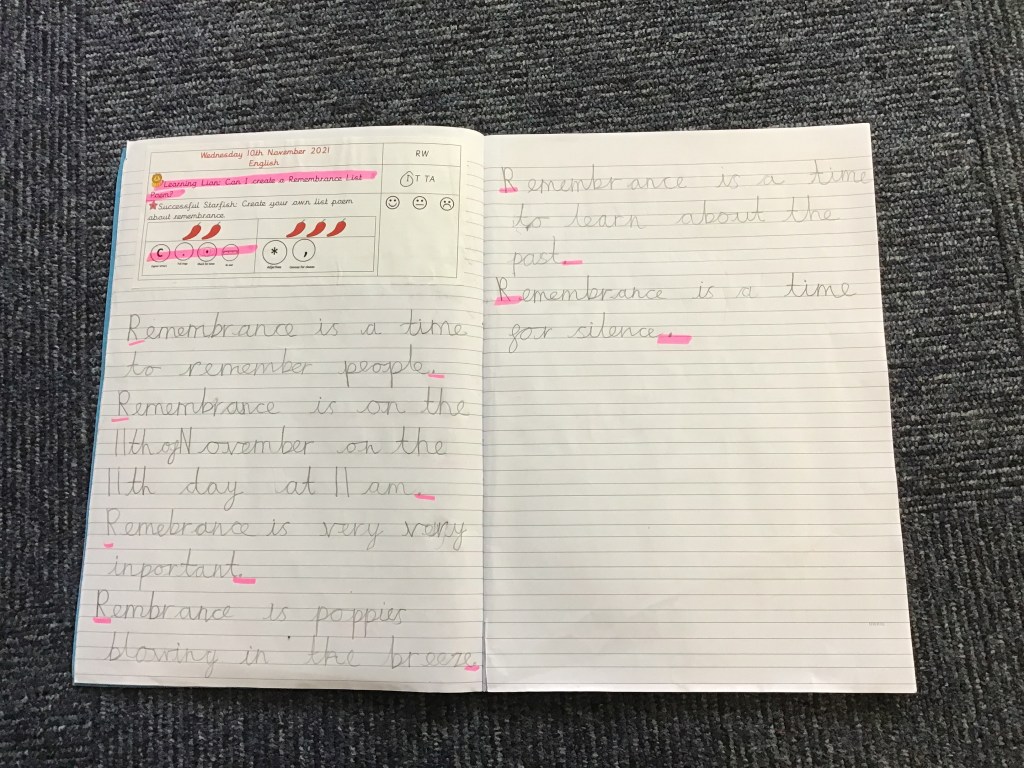 Wednesday 10th November 2021
English
Learning Lion: Can I create a Remembrance List
Poem?
Successful Starfish: Create your own list poem
about remembrance.
C . 
* ,
RW
I T TA
Remembrance is a time
to remember people.
Remembrance is on the
11th of November on the
11th day at 11 am.
Remebrance is very very
inportant.
Rembrance is poppies
blowing in the breeze.
Remembrance is a time
to learn about the
past.
Remembrance is a time
for silence.